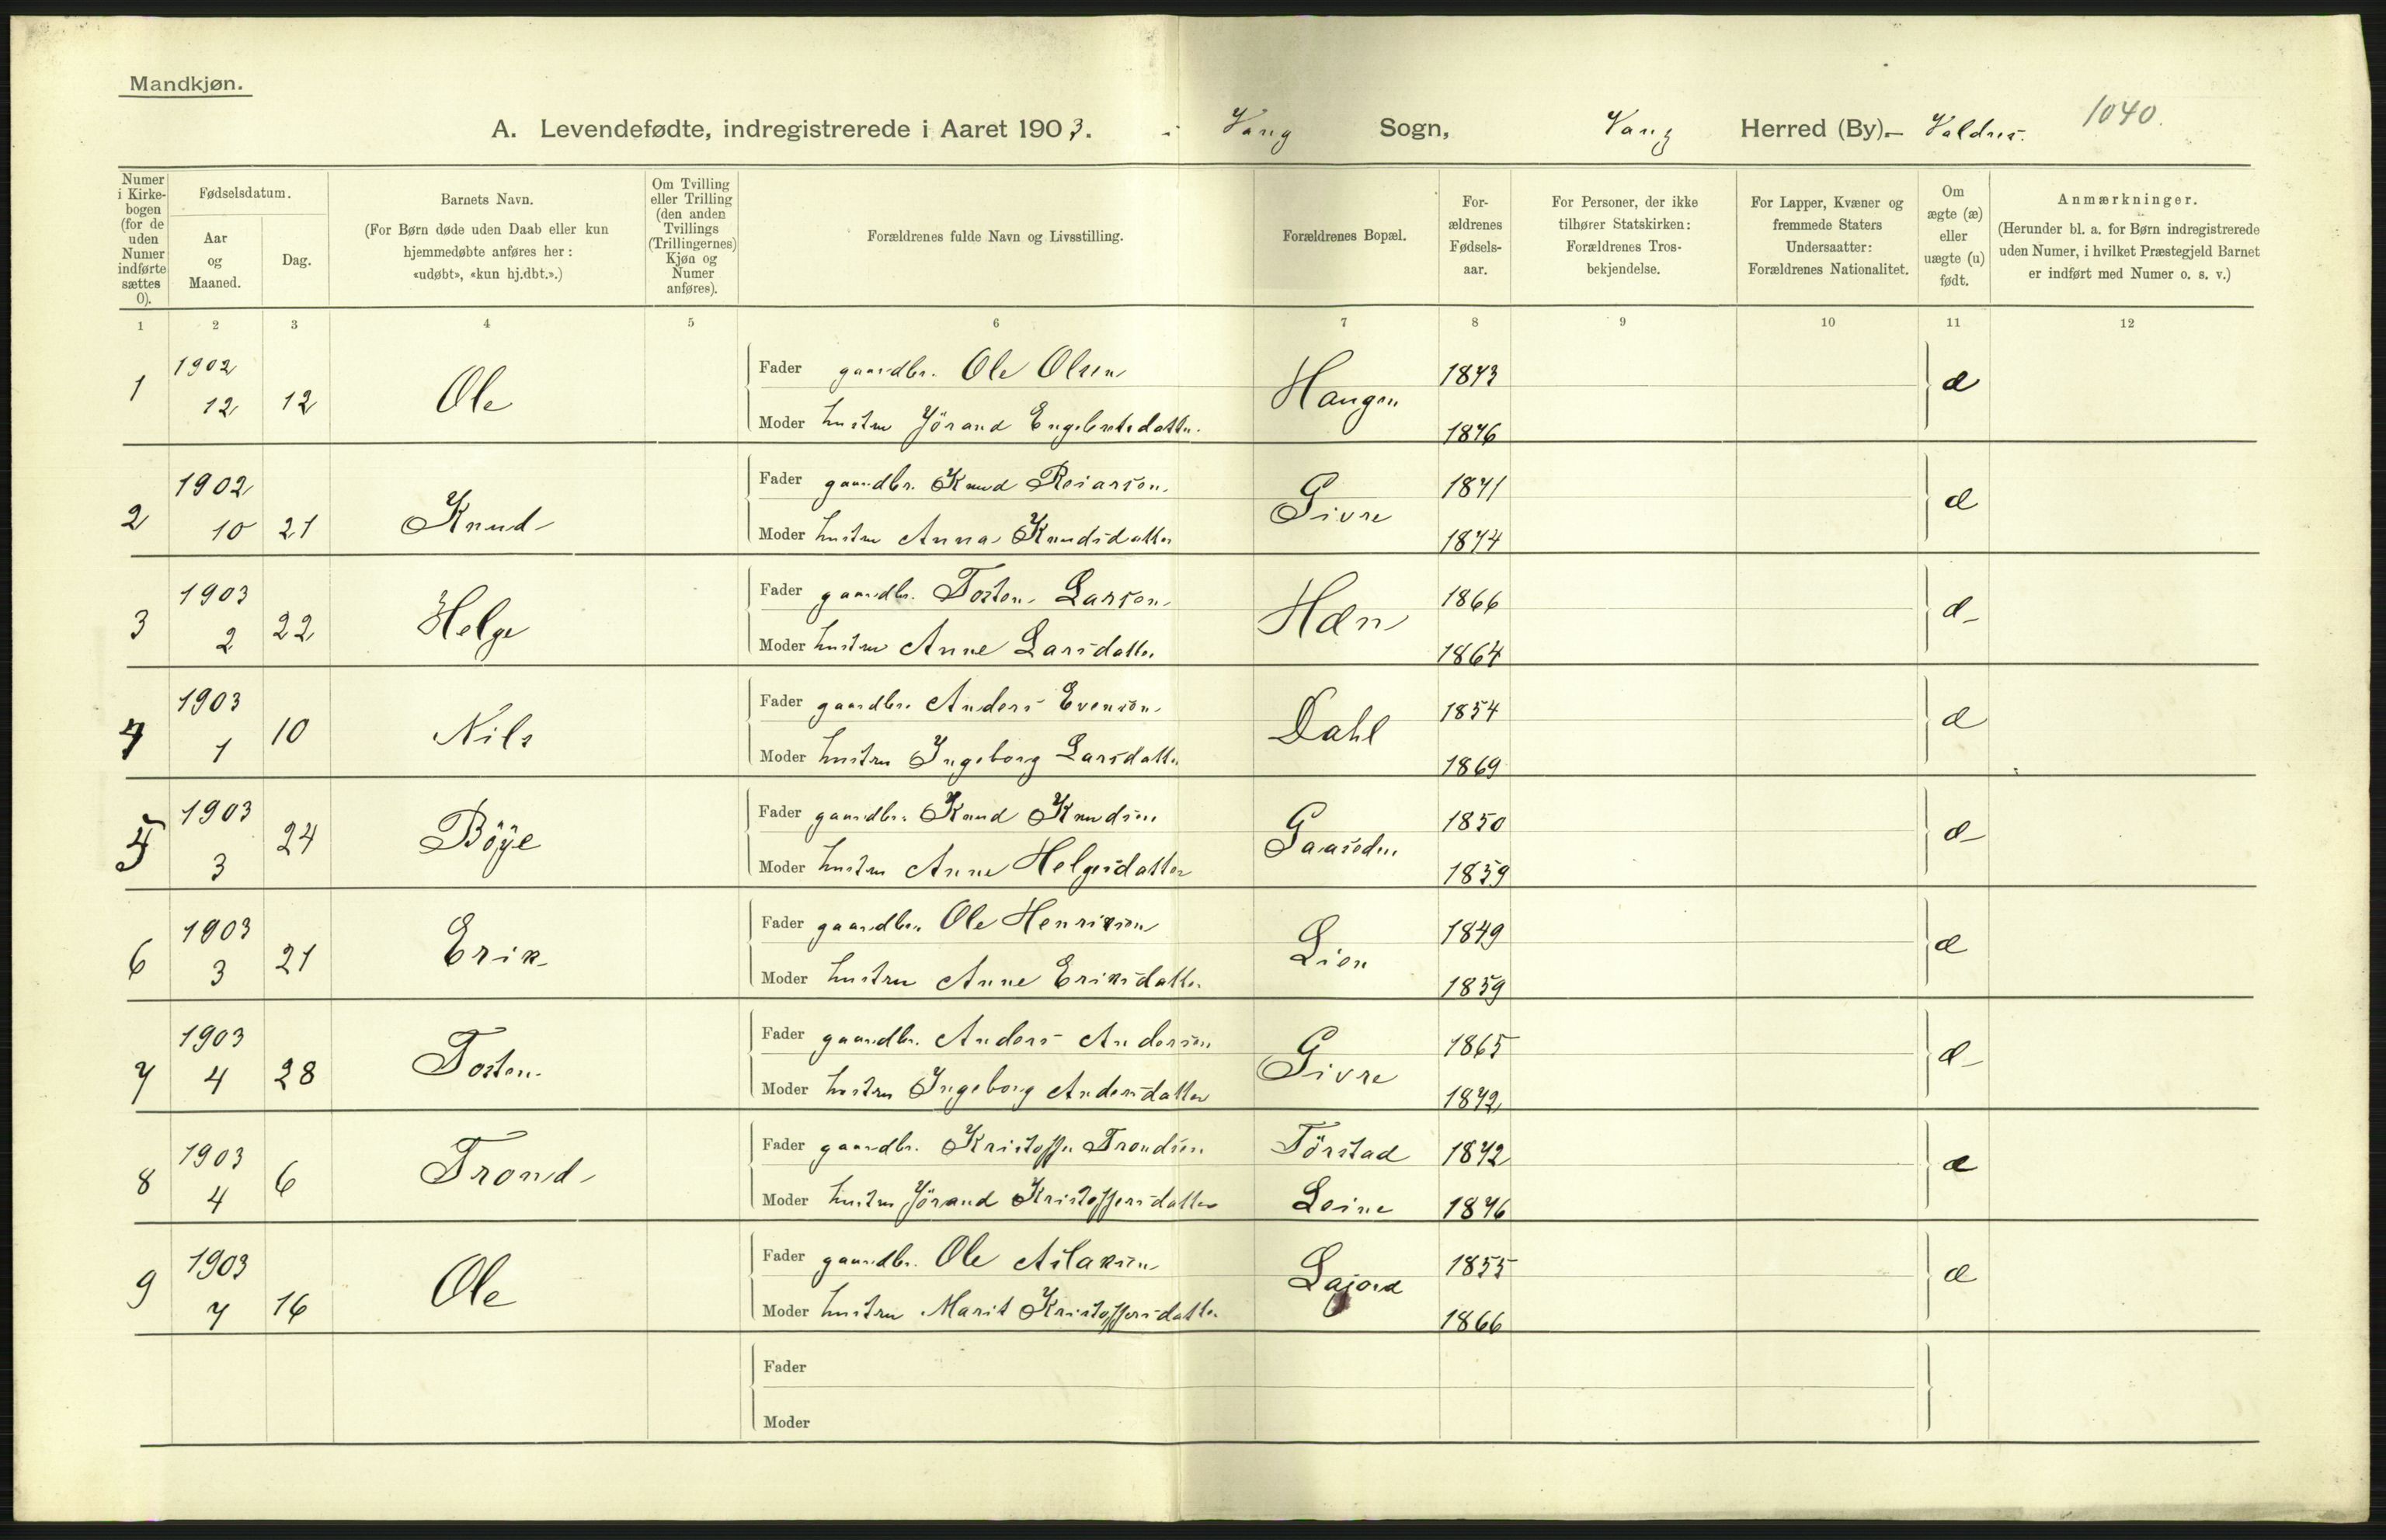 Mandkjøn.
A. Levendefødte, indregistrerede i Aaret 1903. i Vang Sogn, Vang Herred (By) – Valdres. 1040.
Numer i Kirke-bogen (for de uden Numer indførte sættes 0).
Fødselsdatum.
Aar og Maaned.
Dag.
Barnets Navn.
(For Børn døde uden Daab eller kun hjemmedøbte anføres her: «udøbt», «kun hj.dbt.».)
Om Tvilling eller Trilling (den anden Tvillings (Trillingernes) Kjøn og Numer anføres).
Forældrenes fulde Navn og Livsstilling.
Forældrenes Bopæl.
For-ældrenes Fødsels-aar.
For Personer, der ikke tilhører Statskirken: Forældrenes Tros-bekjendelse.
For Lapper, Kvæner og fremmede Staters Undersaatter: Forældrenes Nationalitet.
Om ægte (æ) eller uægte (u) født.
Anmærkninger.
(Herunder bl. a. for Børn indregistrerede uden Numer, i hvilket Præstegjeld Barnet er indført med Numer o. s. v.)
1 2 3 4 5 6 7 8 9 10 11 12
1 1902 12 12 Ole Fader gaardbr. Ole Olsen Haugen 1873 æ
Moder hustru Jörand Engebretsdatter. 1876
2 1902 10 21 Knud Fader gaardbr. Knud Reiarson. Givre 1871 æ
Moder hustru Anna Knudsdatter 1874
3 1903 2 22 Helge Fader gaardbr. Tosten Larson Hæn 1866 æ
Moder hustru Anne Larsdatter 1864
4 1903 1 10 Nils Fader gaardbr. Anders Evenson Dahl 1854 æ
Moder hustru Ingeborg Larsdatter 1869
5 1903 3 24 Böye Fader gaardbr. Knud Knudson 1850 æ
Moder hustru Anne Helgesdatter 1859
6 1903 3 21 Erik Fader gaardbr. Ole Henrikson Lien 1849 æ
Moder hustru Anne Eriksdatter 1859
7 1903 4 28 Tosten Fader gaardbr. Anders Anderson Givre 1865 æ
Moder hustru Ingeborg Andersdatter 1872
8 1903 4 6 Trond Fader gaardbr. Kristoffer Trondson Törstad 1872 æ
Moder hustru Jörand Kristoffersdatter Leine 1876
9 1903 7 16 Ole Fader gaardbr. Ole Aslakson Lajord 1855 æ
Moder hustru Marit Kristoffersdatter 1866
Fader
Moder